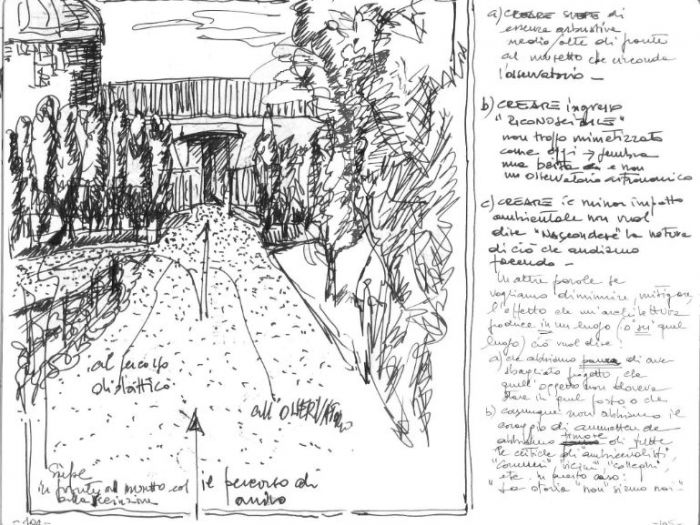 al percorso
didattico
all'OSSERVATORIO
Siepe
in fronte al muretto col
recinzione
il percorso di
arrivo
a) CREARE SIEPE di
essenze arbustive
medio/alte di fronte
al muretto che circonda
l'osservatorio -
b) CREARE ingresso
"RICONOSCIBILE"
non troppo mimetizzato
come oggi → sembra
una e non
un osservatorio astronomico
c) CREARE il minor impatto
ambientale non vuol
dire "Nascondere" la natura
di ciò che andiamo
facendo -
In altre parole se
vogliamo diminuire, mitigare
l'effetto che un'architettura
produce in un luogo (o su quel
luogo) ciò vuol dire:
a) che abbiamo paura di aver
sbagliato progetto, che
quell'oggetto non doveva
stare in quel posto o che
b) comunque non abbiamo il
coraggio di ammettere che
abbiamo timore di
le critiche di "ambientalisti",
"vicini", "colleghi",
etc. in questo caso:
"La storia "non" siamo noi"-